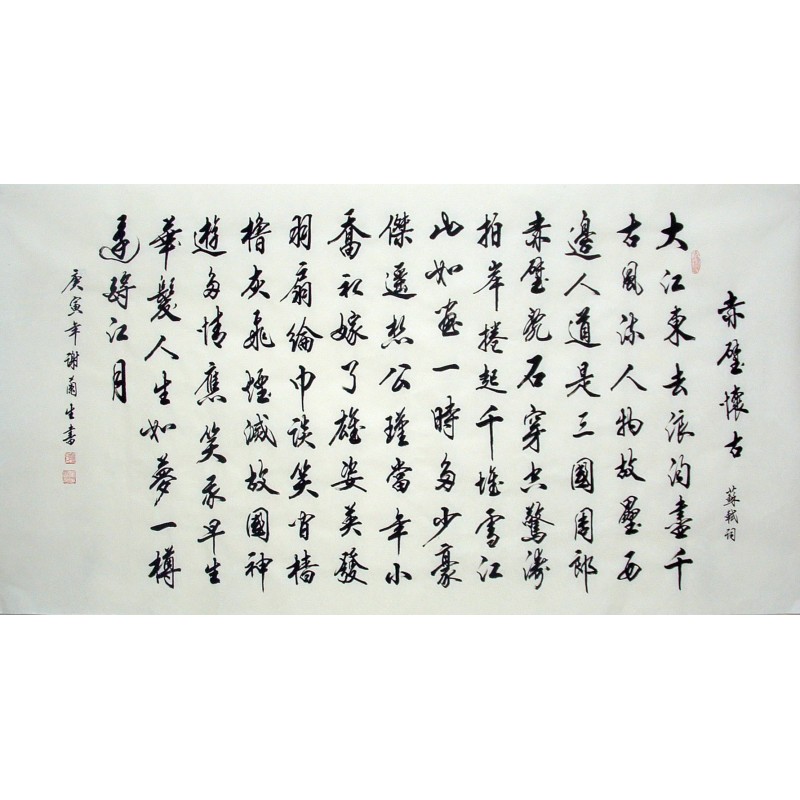 赤壁懷古 蘇軾詞
大江東去浪淘盡千
古風流人物故壘西
邊人道是三國周郎
赤壁亂石穿空驚濤
拍岸捲起千堆雪江
山如畫一時多少豪
傑遥想公瑾當年小
喬初嫁了雄姿英發
羽扇綸巾談笑間檣
櫓灰飛煙滅故國神
遊多情應笑我早生
華髮人生如夢一樽
還酹江月
庚寅年謝蘭生書